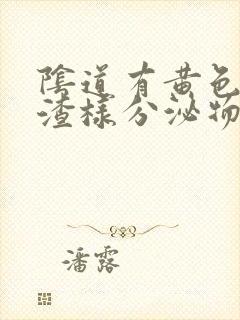 陰道有黄色
渣樣分泌物
潘露